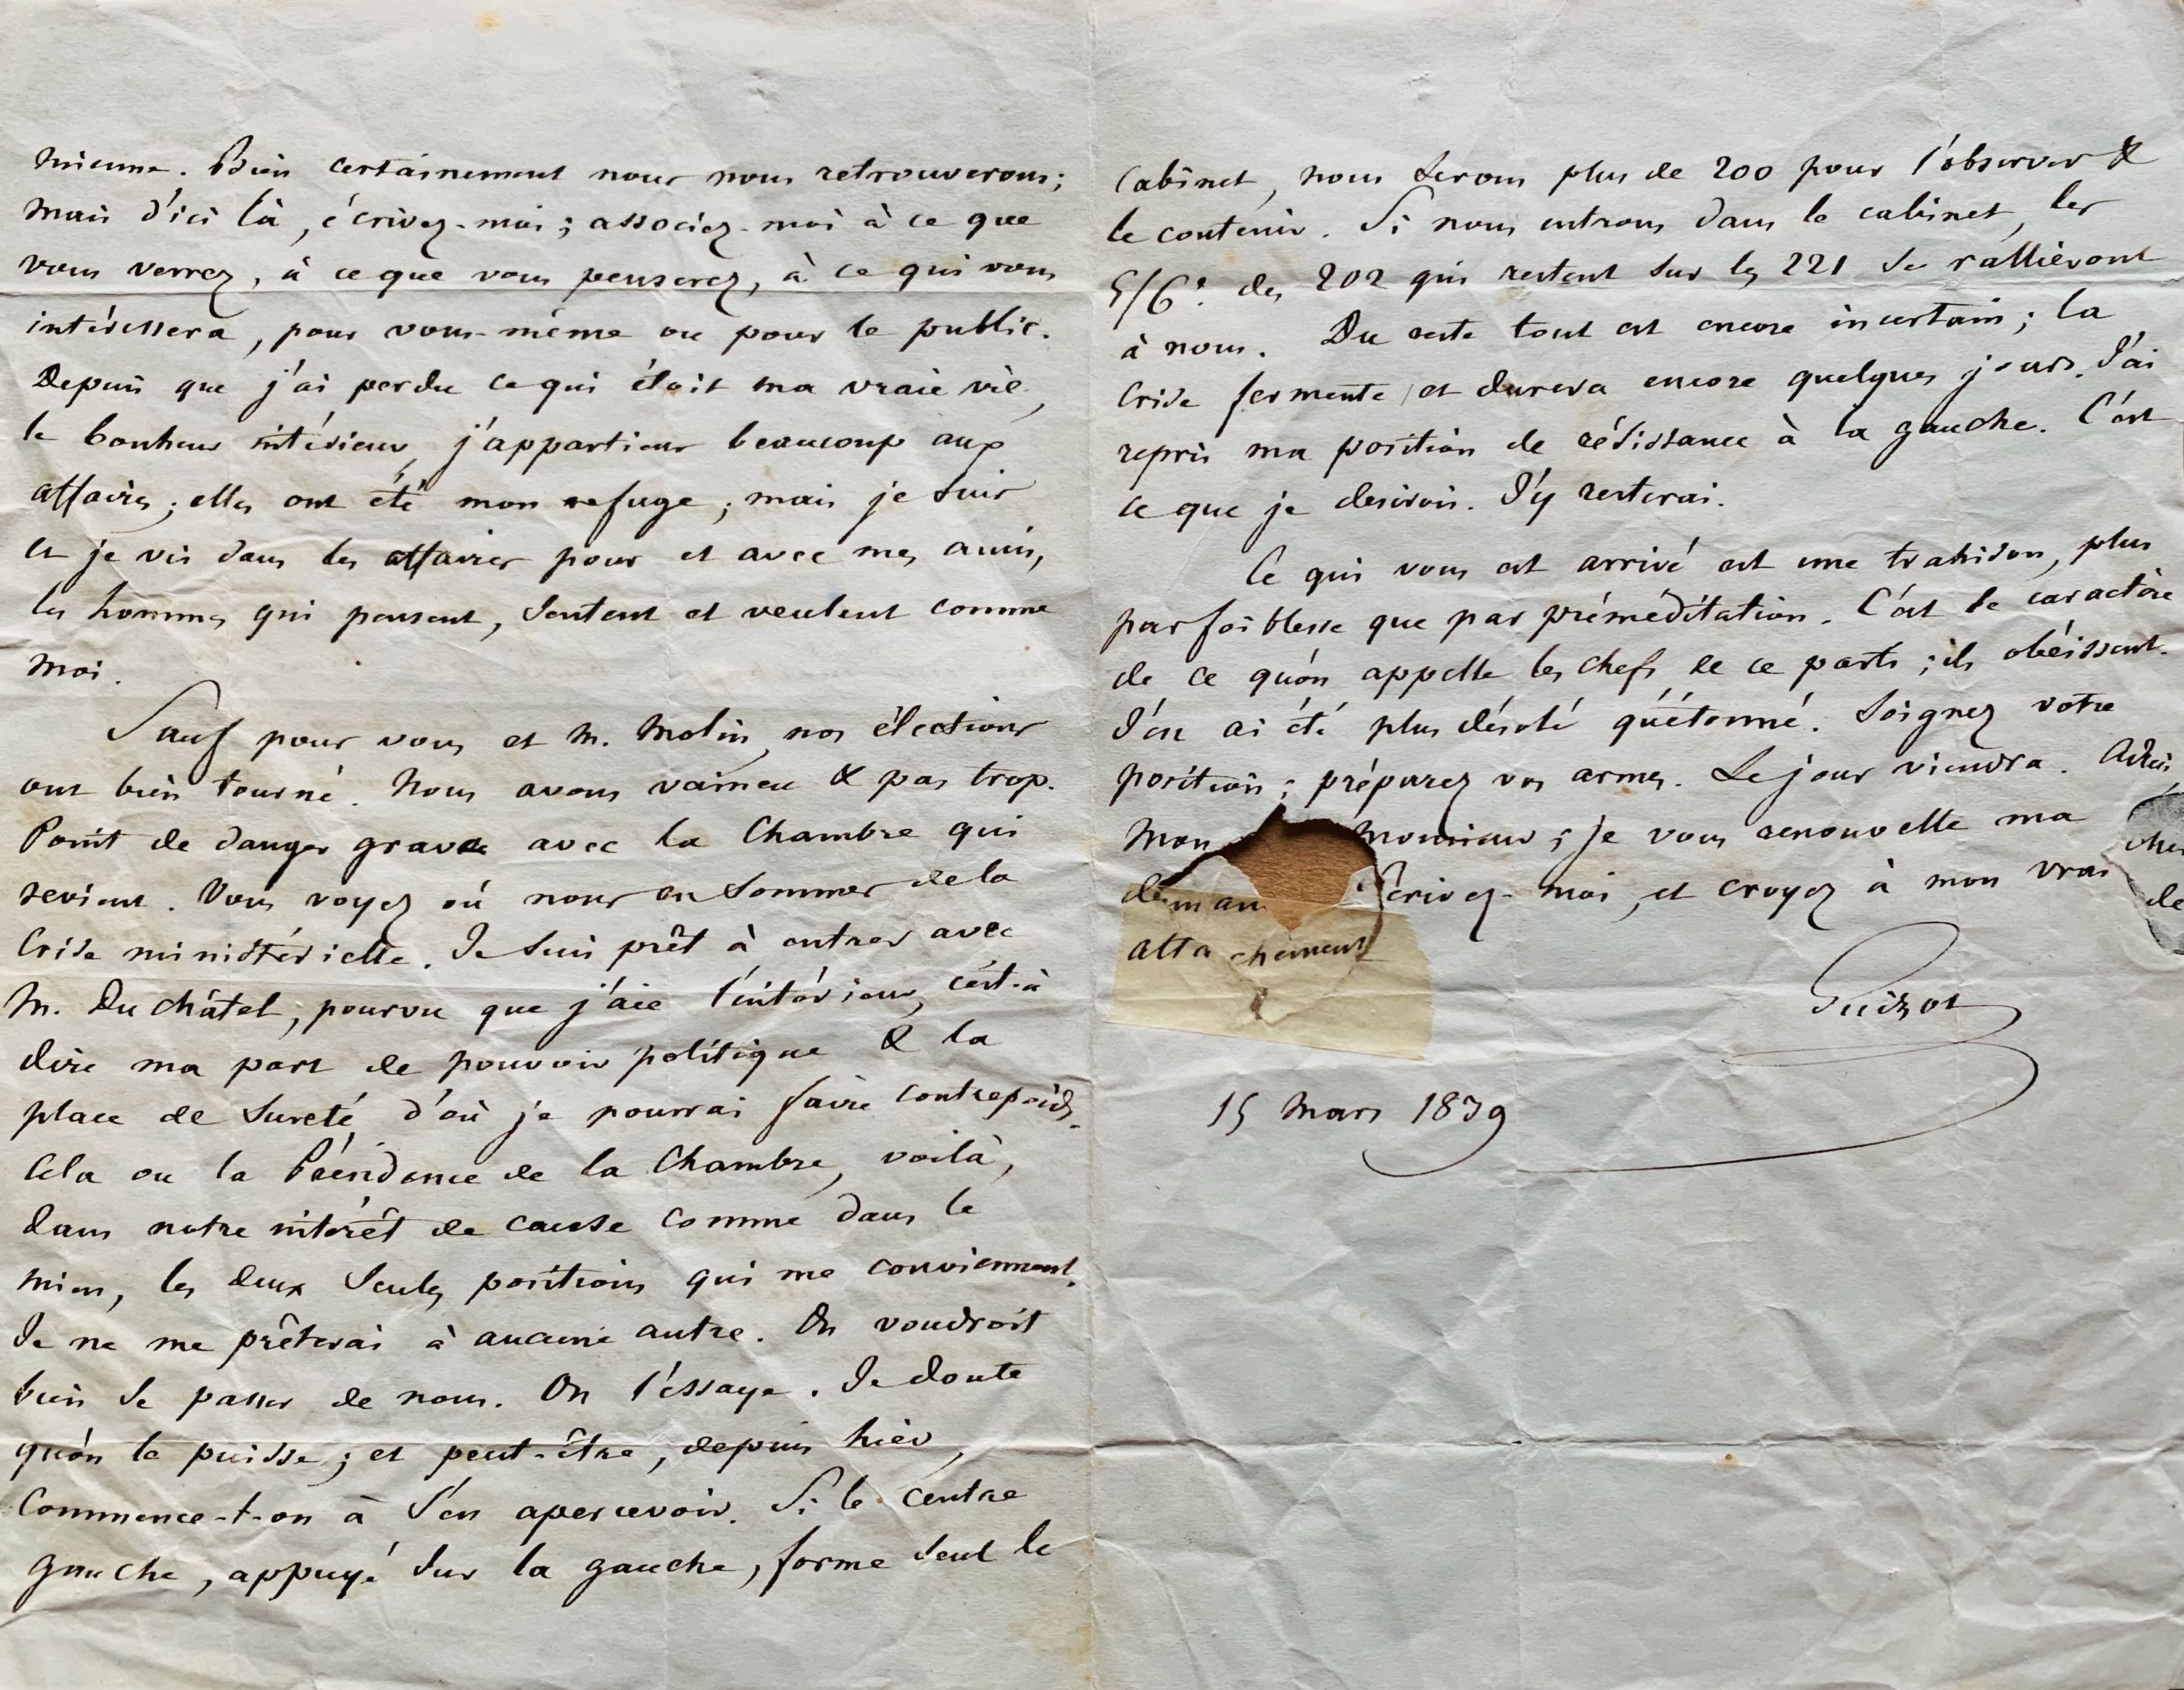 mienne. Bien certainement nous nous retrouverons;
mais d'ici là, écrivez-moi; associez-moi à ce que
vous verrez, à ce que vous penserez, à ce qui vous
intéressera, pour vous-même ou pour le public.
Depuis que j'ai perdu ce qui étoit ma vraie vie,
le bonheur intérieur, j'appartiens beaucoup aux
affaires; elles ont été mon refuge; mais je suis
et je vis dans les affaires pour et avec mes amis,
les hommes qui pensent, sentent et veulent comme
moi.
Sauf pour vous et M. Molin, nos élections
ont bien tourné. Nous avons vaincu & pas trop.
Point de danger grave avec la Chambre qui
revient. Vous voyez où nous en sommes de la
Crise ministérielle. Je suis prêt à entrer avec
M. Duchâtel, pourvu que j'aie l'intérieur, c'est-à
dire ma part de pouvoir politique & la
place de sureté d'où je pourrai faire contrepoids.
Cela ou la Présidence de la Chambre, voilà,
dans notre intérêt de cause comme dans le
mien, les deux seules positions qui me conviennent.
Je ne me prêterai à aucune autre. On voudroit
bien se passer de nous. On l'essaye. Je doute
qu'on le puisse; et peut-être, depuis hier,
Commence-t-on à s'en apercevoir. Si le Centre
gauche, appuyé sur la gauche, forme seul le
Cabinet, nous serons plus de 200 pour l'observer &
le contenir. Si nous entrons dans le cabinet, les
5/6e. des 202 qui restent sur les 221 se rallieront
à nous. Du reste tout est encore incertain; la
Crise fermente et durera encore quelques jours. J'ai
repris ma position de résistance à la gauche. C'est
ce que je desirois. J'y resterai.
Ce qui vous est arrivé est une trahison, plus
par foiblesse que par préméditation. C'est le caractère
de ce qu'on appelle les chefs de ce parti; ils obéissent.
J'en ai été plus désolé qu'étonné. Soignez votre
position; préparez vos armes. Le jour viendra. Adieu,
Mon Monsieur; je vous renouvelle ma
deman Ecrivez-moi, et croyez à mon vrai
attachement
Guizot
15 Mars 1839